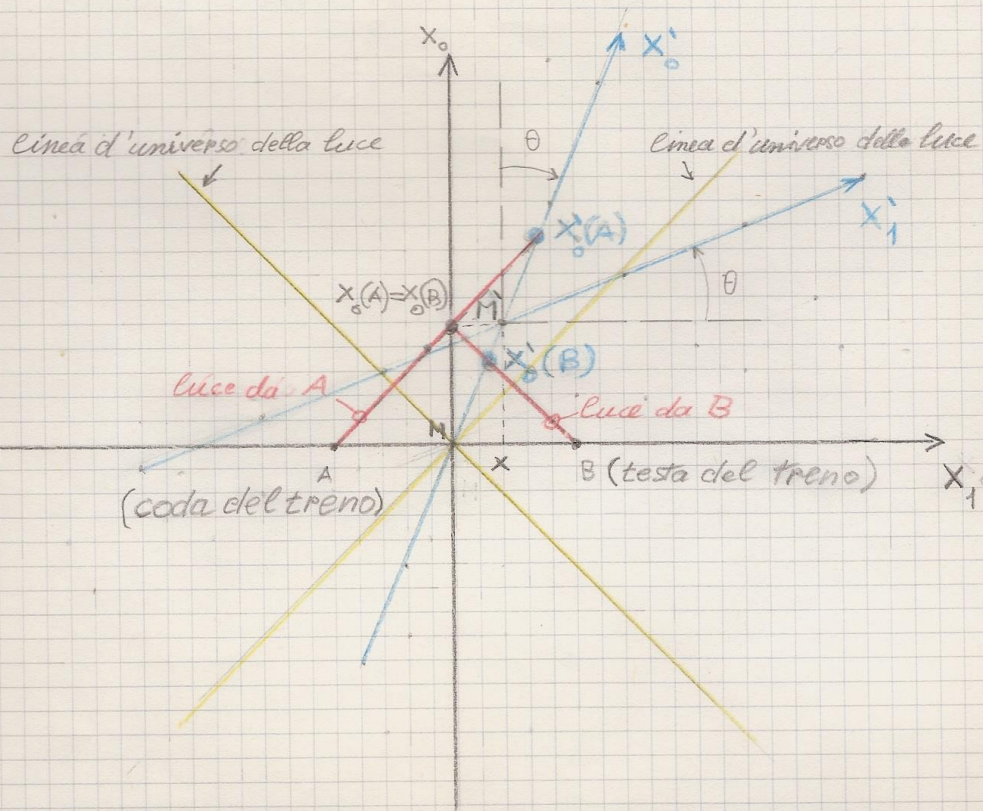 X₀
X'₀
linea d'universo della luce
θ
linea d'universo della luce
X'₁
X'₀(A)
X₀(A)=X₀(B)
M'
θ
X'₀(B)
luce da A
luce da B
M
A
X
B (testa del treno)
X₁
(coda del treno)